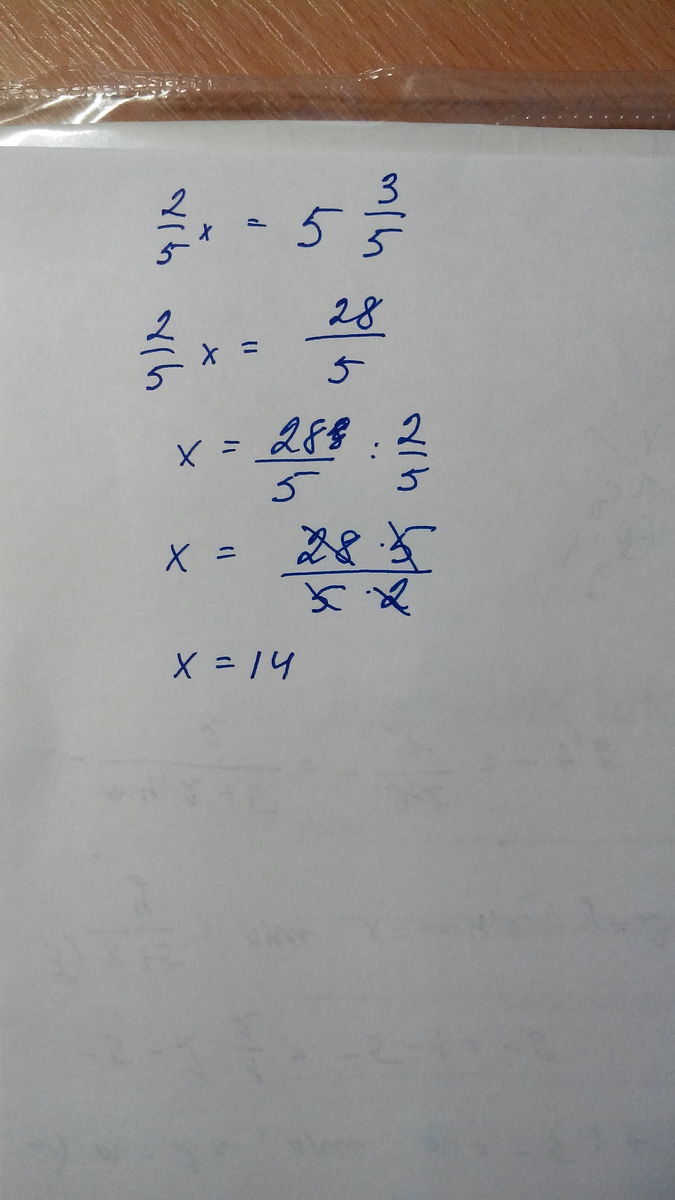 2/5 x = 5 3/5
2/5 x = 28/5
x = 28/5 : 2/5
x = 28 · 5 / 5 · 2
x = 14